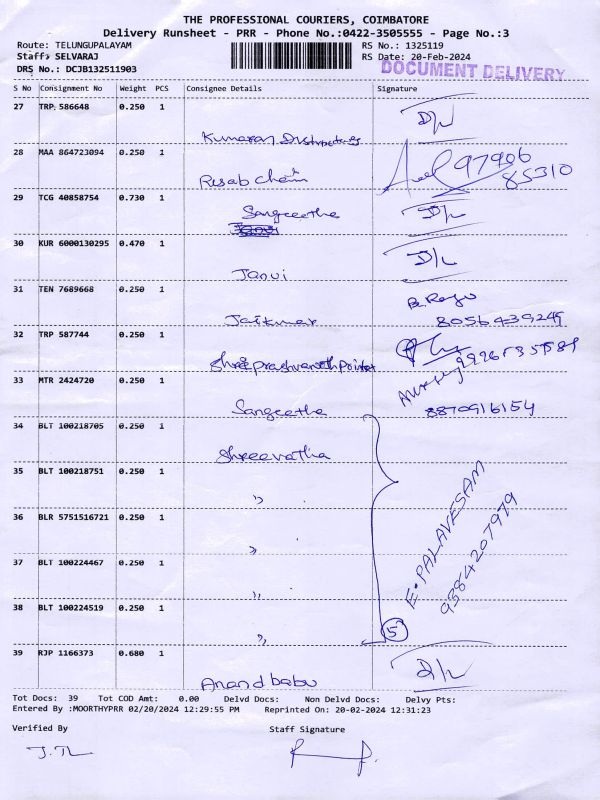 THE PROFESSIONAL COURIERS, COIMBATORE
Delivery Runsheet - PRR - Phone No.:0422-3505555 - Page No.:3
Route: TELUNGUPALAYAM RS No.: 1325119
Staff: SELVARAJ RS Date: 20-Feb-2024
DRS No.: DCJB132511903 DOCUMENT DELIVERY
S No Consignment No Weight PCS Consignee Details Signature
27 TRP 586648 0.250 1 D/L
Kumaran Distributors
28 MAA 864723094 0.250 1 97906
85310
Resab Chain
29 TCG 40858754 0.730 1 D/L
Sangeetha
30 KUR 6000130295 0.470 1 D/L
Janvi
31 TEN 7689668 0.250 1 B. Raju
Jaikumar 8056439249
32 TRP 587744 0.250 1
Shree prashvanath Pointer
33 MTR 2424720 0.250 1
Sangeetha 8870916154
34 BLT 100218705 0.250 1
Shreevatha
35 BLT 100218751 0.250 1
"
36 BLR 5751516721 0.250 1 E. PALAVESAM
" 9384207979
37 BLT 100224467 0.250 1
"
38 BLT 100224519 0.250 1
" 5
39 RJP 1166373 0.680 1 D/L
Anand babu
Tot Docs: 39 Tot COD Amt: 0.00 Delvd Docs: Non Delvd Docs: Delvy Pts:
Entered By :MOORTHYPRR 02/20/2024 12:29:55 PM Reprinted On: 20-02-2024 12:31:23
Verified By Staff Signature